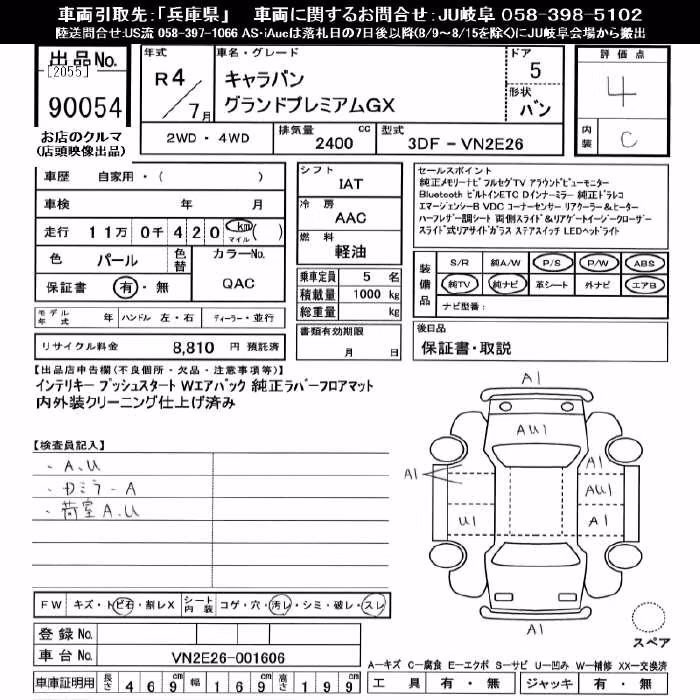 車両引取先:「兵庫県」 車両に関するお問合せ:JU岐阜 058-398-5102
陸送問合せ:US流 058-397-1066 AS・iAucは落札日の7日後以降(8/9〜8/15を除く)にJU岐阜会場から搬出
出品No.
[2055]
90054
お店のクルマ
(店頭映像出品)
年式
R4/7月
車名・グレード
キャラバン
グランドプレミアムGX
ドア
5
形状
バン
評価点
4
内装
C
2WD・4WD
排気量
2400 cc
型式
3DF-VN2E26
車歴 自家用・( )
車検 年 月
走行 11万0千420 km マイル ( )
色 パール 色替
カラーNo.
QAC
保証書 有・無
モデル年式 年 ハンドル 左・右 ディーラー・並行
リサイクル料金 8,810 円 預託済
シフト
IAT
冷房
AAC
燃料
軽油
乗車定員 5 名
積載量 1000 kg
総重量 kg
書類有効期限
月 日
セールスポイント
純正メモリーナビ フルセグTV アラウンドビューモニター
Bluetooth ビルトインETC Dインナーミラー 純正ドラレコ
エマージェンシーB VDC コーナーセンサー リアクーラー&ヒーター
ハーフレザー調シート 両側スライド&リアゲートイージークローザー
スライド式リアサイドガラス ステアスイッチ LEDヘッドライト
装備品
S/R 純A/W P/S P/W ABS
純TV 純ナビ 革シート 外ナビ エアB
ナビ型番:
後日品
保証書・取説
【出品店申告欄(不良個所・欠品・注意事項等)】
インテリキー プッシュスタート Wエアバック 純正ラバーフロアマット
内外装クリーニング仕上げ済み
【検査員記入】
・A.U
・カミラ-A
・荷室A.U
A1
AU1
A1
A1
AU1
U1
A1
A1
スペア
FW キズ・トビ石・割レX シート内装 コゲ・穴・汚レ・シミ・破レ・スレ
登録No.
車台No. VN2E26-001606
車庫証明用 長さ 469cm 幅 169cm 高さ 199cm
A-キズ C-腐食 E-エクボ S-サビ U-凹み W-補修 XX-交換済
工具 有・無 ジャッキ 有・無